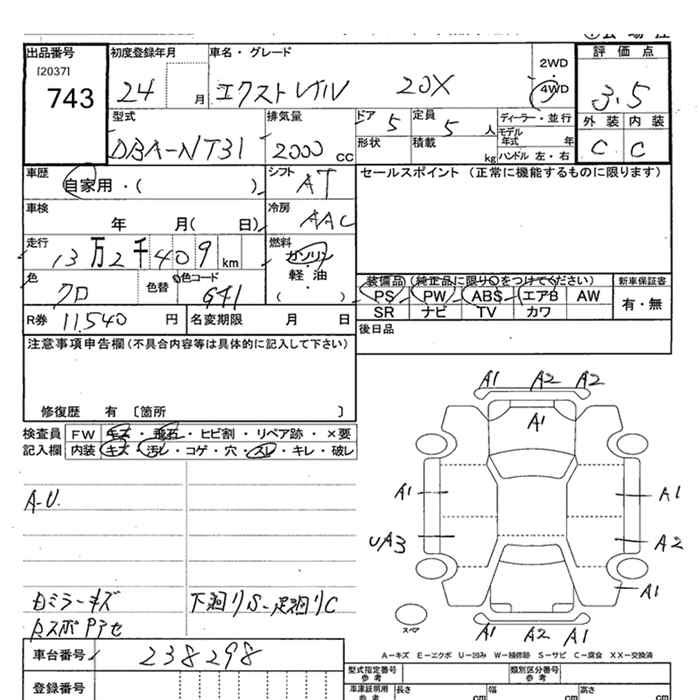 出品番号 初度登録年月 車名・グレード 2WD 評価点
[2037]
743 24 月 エクストレイル 20X 4WD 3.5
型式 排気量 ドア 5 定員 5 人 ディーラー・並行 外装 内装
DBA-NT31 2000 CC 形状 積載 kg モデル年式 年 C C
ハンドル 左・右
車歴 自家用・( ) シフト AT セールスポイント (正常に機能するものに限ります)
車検 年 月( 日) 冷房 AAC
走行 13万2千409 km 燃料 ガソリン
軽油
( ・ )
色 クロ 色替 色コード G41 装備品 (純正品に限り○をつけてください) 新車保証書
PS PW ABS エアB AW 有・無
R券 11,540 円 名変期限 月 日 SR ナビ TV カワ
注意事項申告欄 (不具合内容等は具体的に記入して下さい) 後日品
修復歴 有 [箇所 ]
検査員 FW キズ・飛石・ヒビ割・リペア跡・×要
記入欄 内装 キズ・汚レ・コゲ・穴・スレ・キレ・破レ
A1 A2 A2
A1
A1 A1
UA3 A2
A1
スペア
A1 A2 A1
A-U.
ミラーキズ 下廻りS-足廻りC
車台番号 238298
A-キズ E-エクボ U-凹み W-補修跡 S-サビ C-腐食 XX-交換済
登録番号 型式指定番号 参考 類別区分番号 参考
車庫証明用 参考 長さ cm 幅 cm 高さ cm